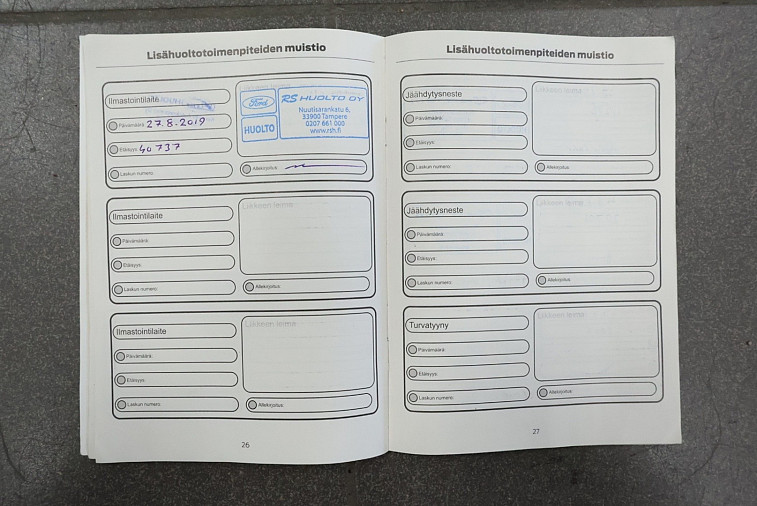 Lisähuoltotoimenpiteiden muistio
Ilmastointilaite
Päivämäärä: 27.8.2019
Etäisyys: 40 737
Laskun numero:
Ford
HUOLTO
RS HUOLTO OY
Nuutisarankatu 6,
33900 Tampere
0207 661 000
www.rsh.fi
Allekirjoitus:
Ilmastointilaite
Päivämäärä:
Etäisyys:
Laskun numero:
Liikkeen leima
Allekirjoitus:
Ilmastointilaite
Päivämäärä:
Etäisyys:
Laskun numero:
Liikkeen leima
Allekirjoitus:
26
Lisähuoltotoimenpiteiden muistio
Jäähdytysneste
Päivämäärä:
Etäisyys:
Laskun numero:
Liikkeen leima
Allekirjoitus:
Jäähdytysneste
Päivämäärä:
Etäisyys:
Laskun numero:
Liikkeen leima
Allekirjoitus:
Turvatyyny
Päivämäärä:
Etäisyys:
Laskun numero:
Liikkeen leima
Allekirjoitus:
27